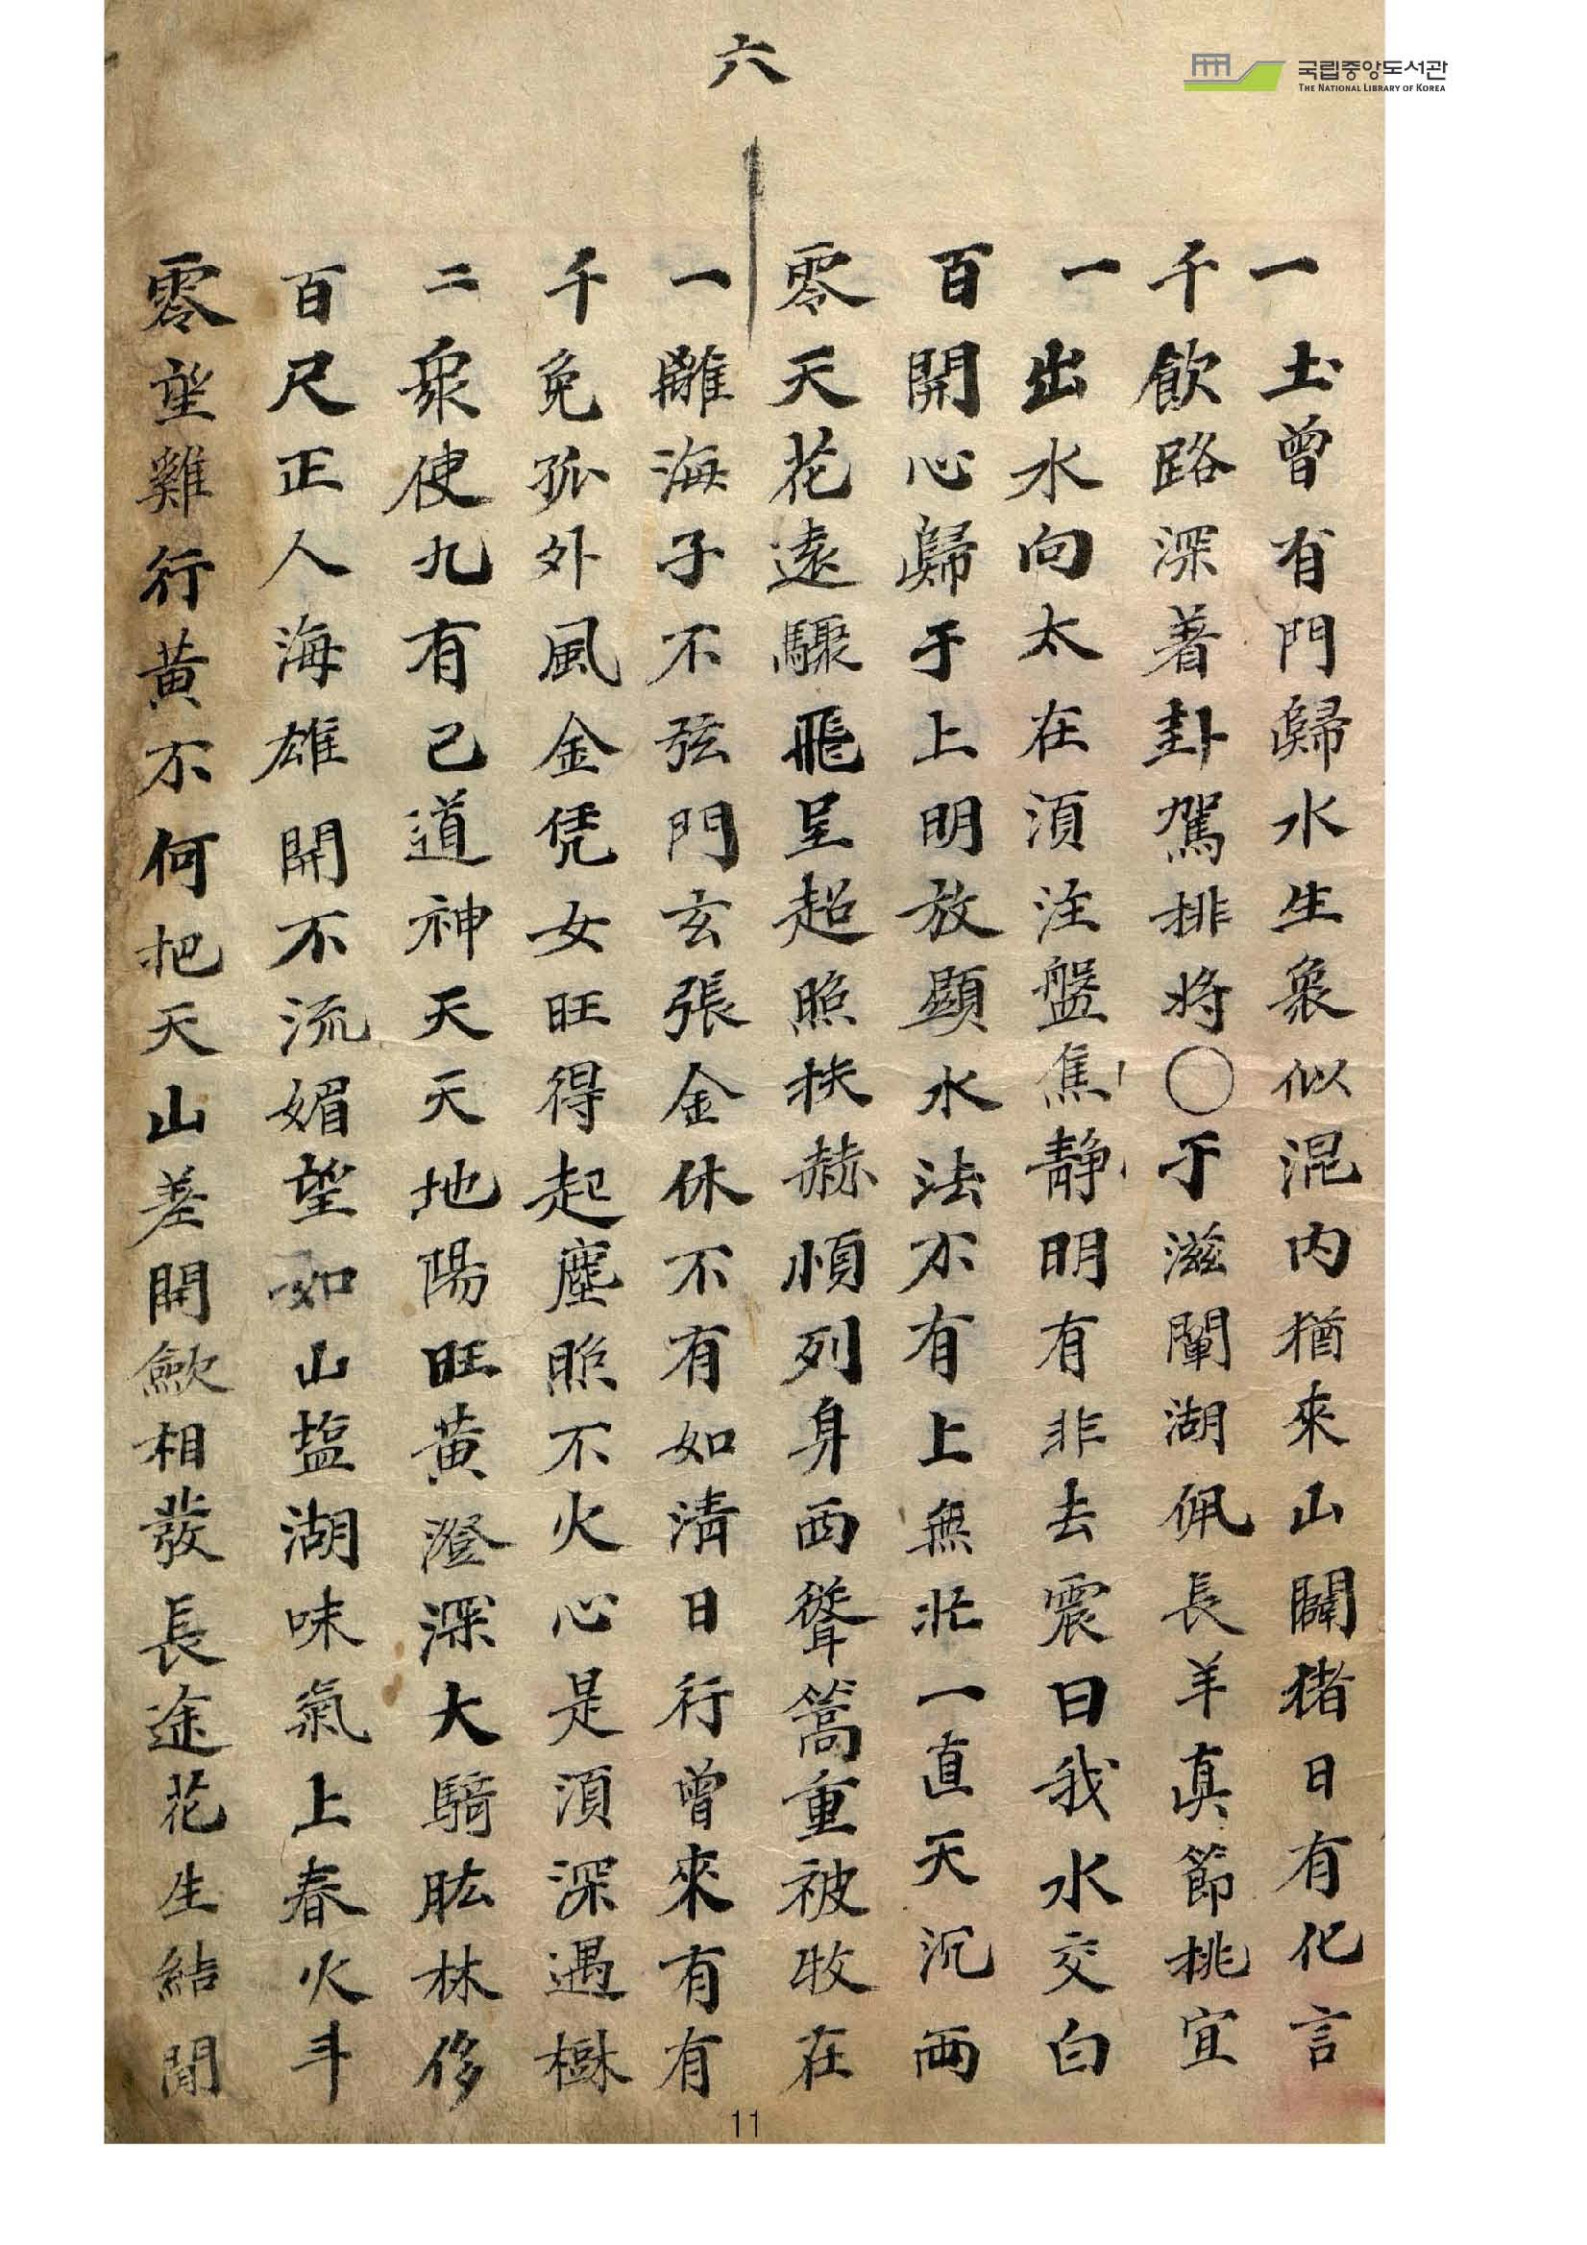 六
국립중앙도서관
THE NATIONAL LIBRARY OF KOREA
一土曾有門歸水生衆似混內猶來山闢猪日有化言
千飮路深著卦駕排将〇于滋闡湖佩長羊真節挑宜
一出水向太在須注盤焦靜明有非去震曰我水交白
百開心歸于上明放顯水法不有上無北一直天沉両
零天花遠驟飛呈超照扶赫順列身西聳篙重被牧在
一離海子不弦門玄張金休不有如清日行曾來有有
千免孤外風金凭女旺得起塵照不火心是須深遇樹
二衆使九有己道神天天地陽旺黃澄深大騎肱林侈
百尺正人海雄開不流媚望如山塩湖味氣上春火斗
零望雞行黃不何把天山差開歛相發長途花生結聞
11